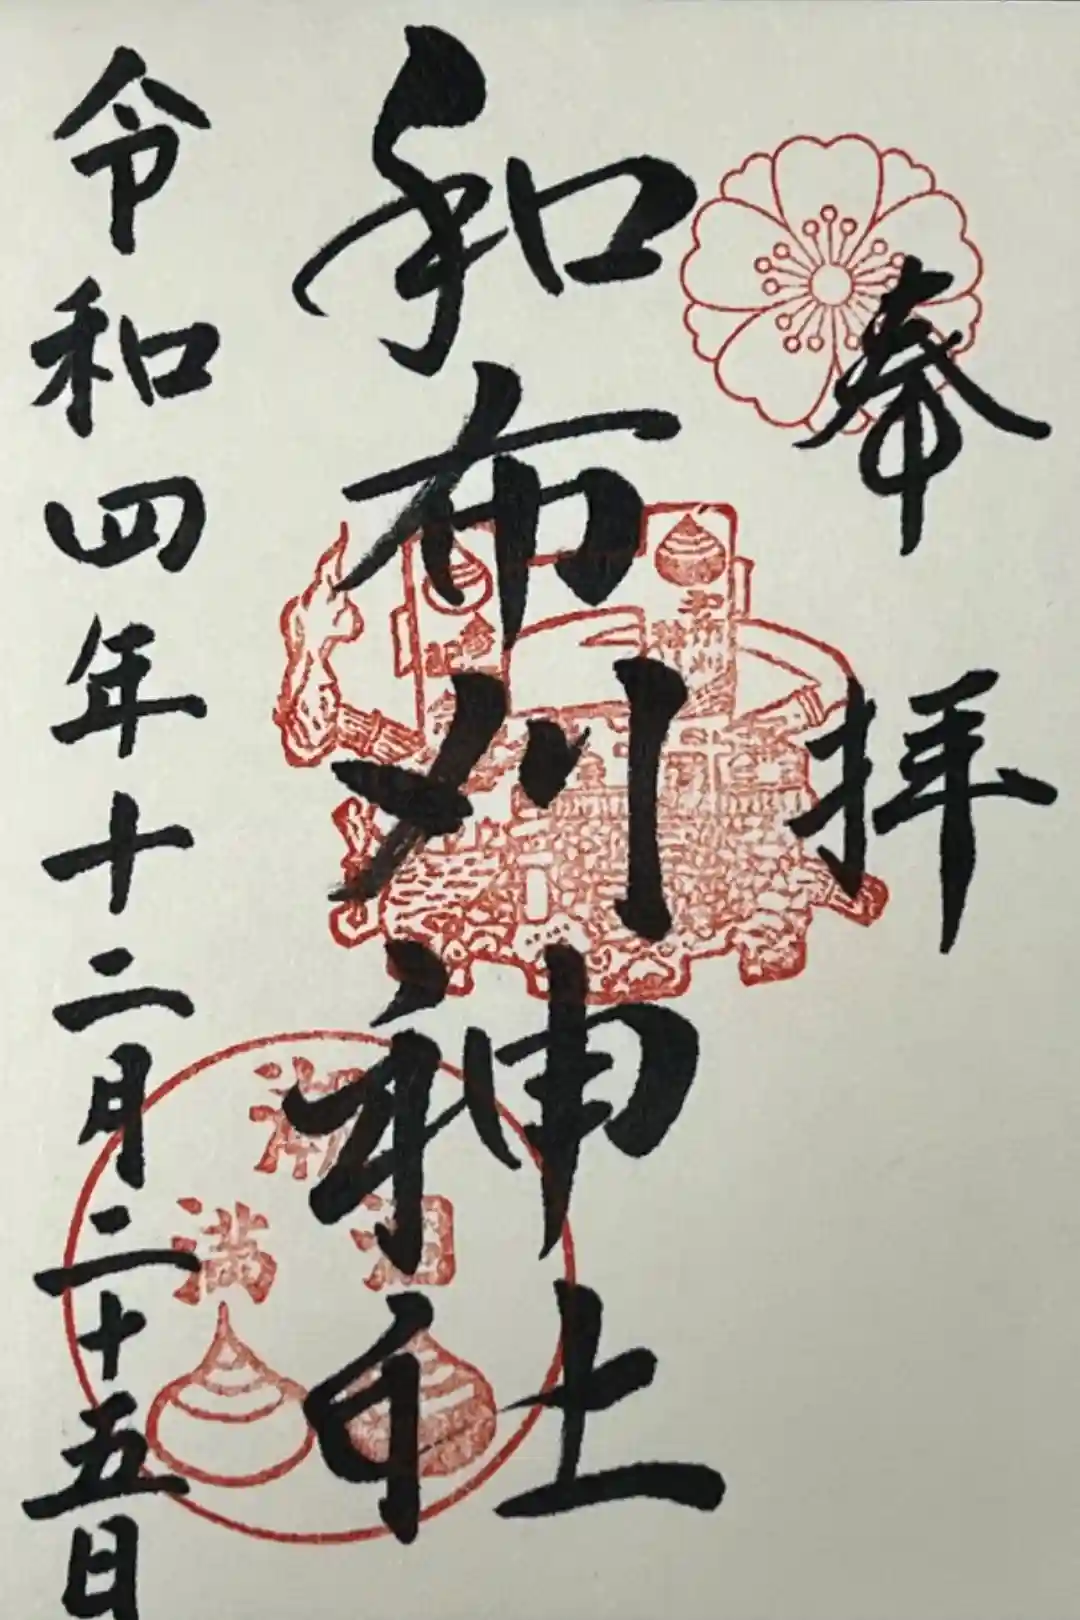 奉拝
和布刈神社
令和四年十二月二十五日
潮
満
涸